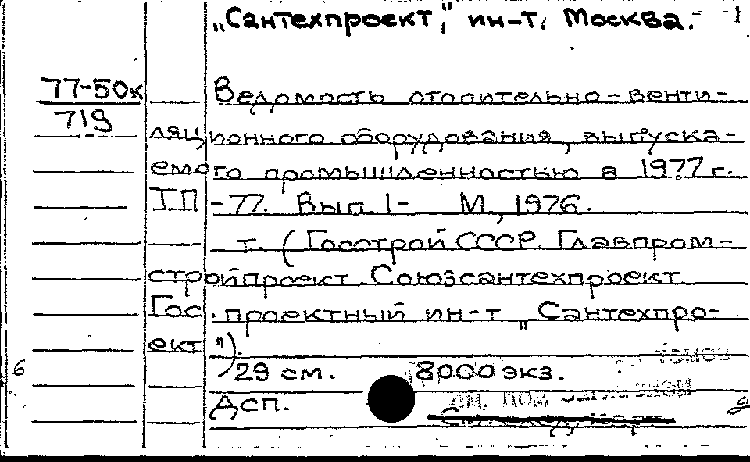 „Сантехпроект", ин-т. Москва. -
77-50к
719
Ведомость отопительно-венти-
ляционного оборудования, выпуска-
емого промышленностью в 1977 г.
ТП-77. Вып. 1- М., 1976.
т. (Госстрой СССР. Главпром-
стройпроект. Союзсантехпроект.
Гос. проектный ин-т „Сантехпро-
ект").
29 см. 8000 экз.
6
Дсп.